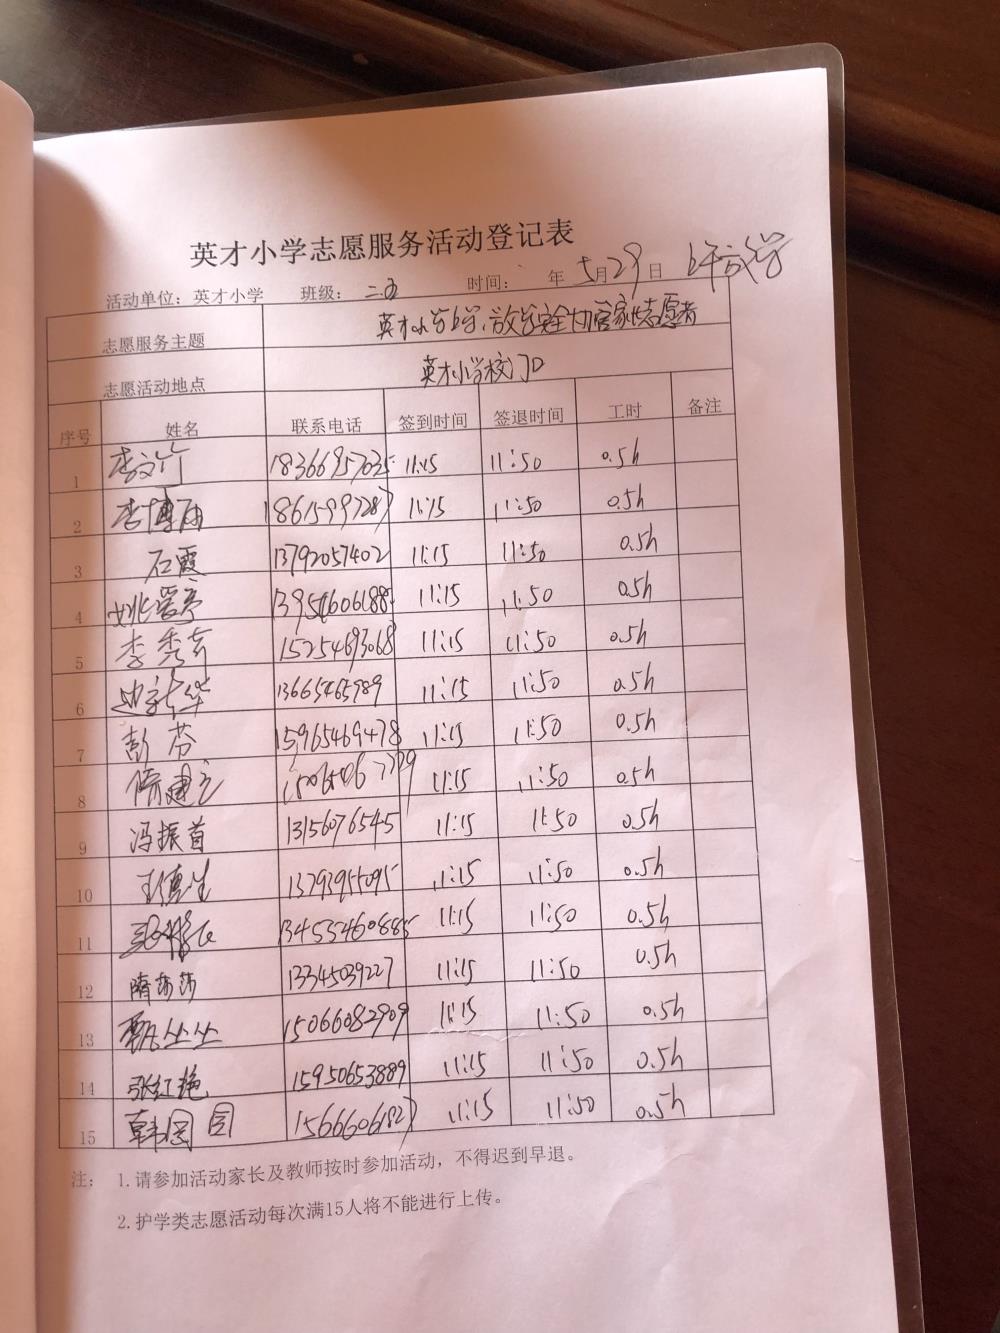 英才小学志愿服务活动登记表
活动单位：英才小学 班级：二五 时间： 年 5月29日 上午放学
志愿服务主题 英才小学上学、放学安全 家长志愿者
志愿活动地点 英才小学校门口
序号 姓名 联系电话 签到时间 签退时间 工时 备注
1 李文竹 18366957635 11:15 11:50 0.5h
2 李博雨 18615997287 11:15 11:50 0.5h
3 石霞 13792057402 11:15 11:50 0.5h
4 姚爱亭 13954606188 11:15 11:50 0.5h
5 李秀奇 15254693068 11:15 11:50 0.5h
6 13665465789 11:15 11:50 0.5h
7 彭芬 15965469478 11:15 11:50 0.5h
8 11:15 11:50 0.5h
9 冯振首 13156076545 11:15 11:50 0.5h
10 王德生 13793955095 11:15 11:50 0.5h
11 13455460885 11:15 11:50 0.5h
12 隋莎莎 13345039227 11:15 11:50 0.5h
13 甄丛丛 15066082909 11:15 11:50 0.5h
14 张红艳 15950653889 11:15 11:50 0.5h
15 韩囡囡 15666061827 11:15 11:50 0.5h
注： 1.请参加活动家长及教师按时参加活动，不得迟到早退。
2.护学类志愿活动每次满15人将不能进行上传。